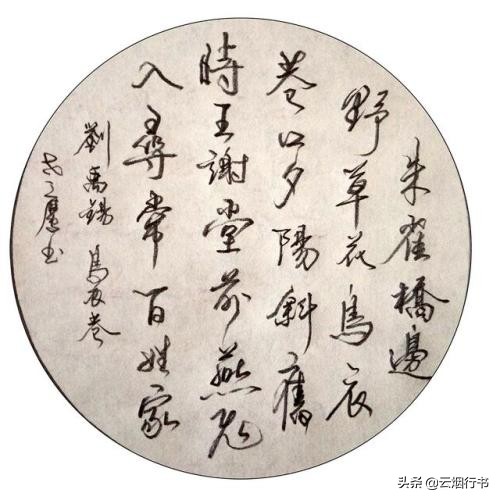 朱雀橋邊
野草花烏衣
巷口夕陽斜舊
時王謝堂前燕飛
入尋常百姓家
劉禹錫 烏衣巷
书
头条 @云烟行书